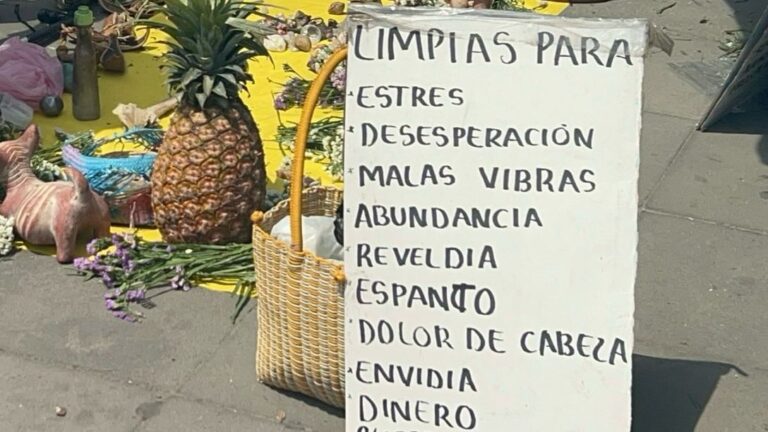 LIMPIAS PARA
·ESTRES
·DESESPERACIÓN
·MALAS VIBRAS
·ABUNDANCIA
·REVELDIA
·ESPANTO
·DOLOR DE CABEZA
·ENVIDIA
·DINERO